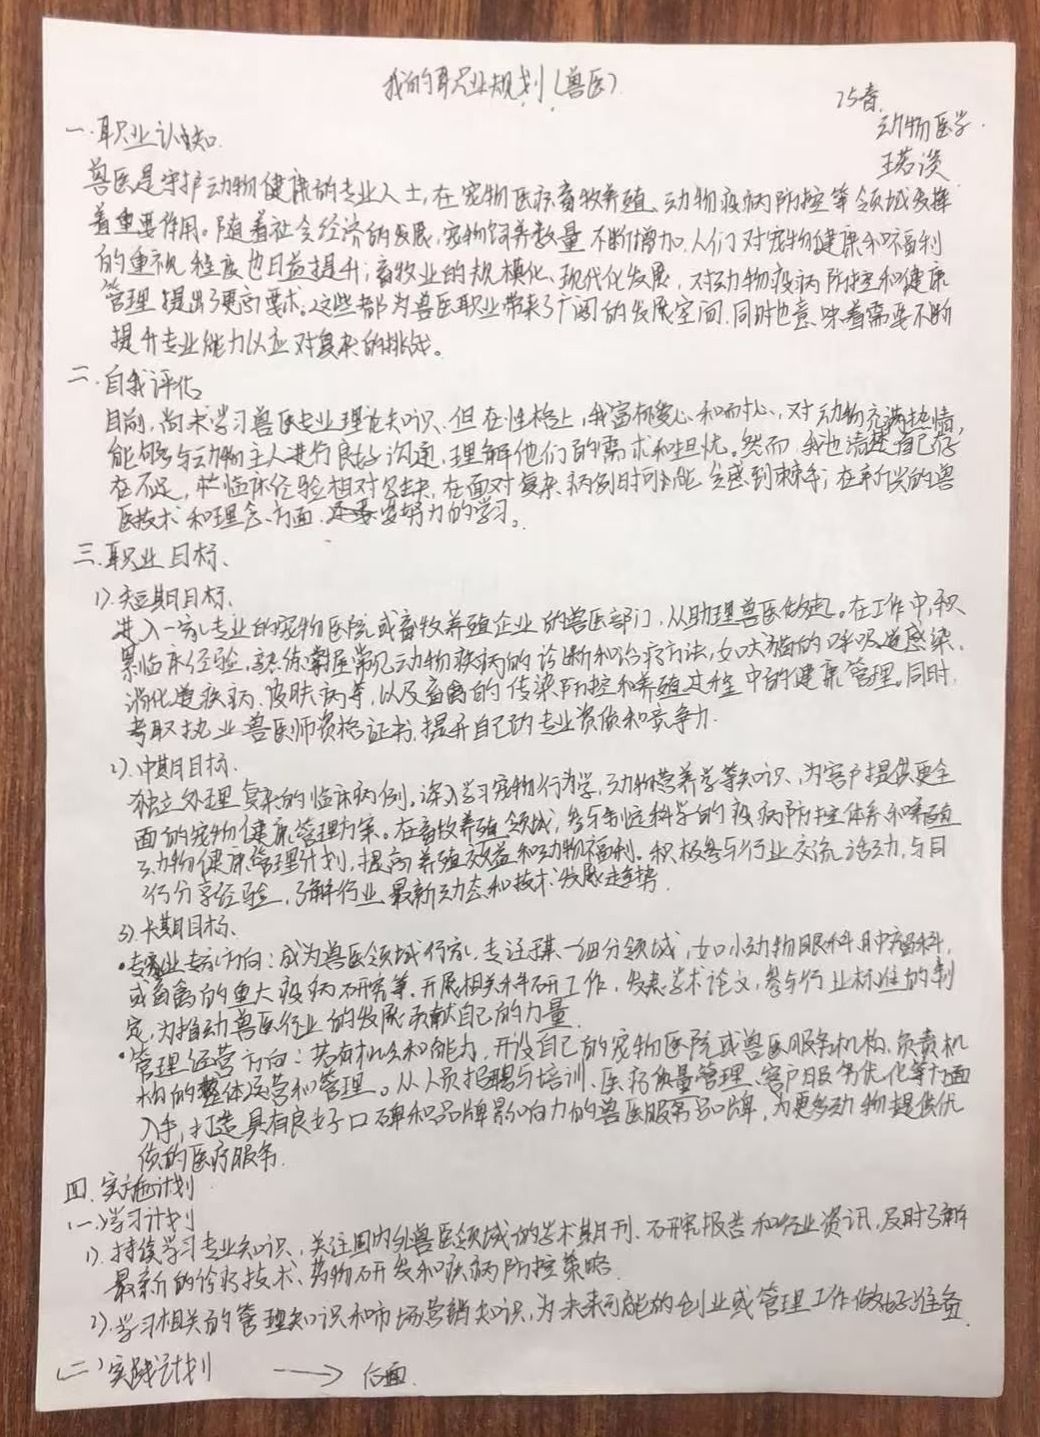 我的职业规划(兽医)
25春
动物医学.
王若淡
一.职业认知
兽医是守护动物健康的专业人士,在宠物医疗畜牧养殖、动物疫病防控等领域发挥
着重要作用。随着社会经济的发展,宠物饲养数量不断增加.人们对宠物健康和福利
的重视程度也日益提升;畜牧业的规模化、现代化发展,对动物疫病防控和健康
管理提出了更高要求。这些都为兽医职业带来了广阔的发展空间.同时也意味着需要不断
提升专业能力以应对复杂的挑战。
二.自我评估
目前,尚未学习兽医专业理论知识、但在性格上,我富有爱心和耐心,对动物充满热情,
能够与动物主人进行良好沟通,理解他们的需求和担忧。然而,我也清楚自己存
在不足,临床经验相对欠缺,在面对复杂病例时可能会感到棘手;在新兴的兽
医技术和理念方面,要努力的学习。
三.职业目标、
1).短期目标、
进入一家专业的宠物医院或畜牧养殖企业的兽医部门,从助理兽医做起。在工作中,积
累临床经验,熟练掌握常见动物疾病的诊断和治疗方法,如犬猫的呼吸道感染、
消化道疾病、皮肤病等,以及畜禽的传染防控和养殖过程中的健康管理。同时,
考取执业兽医师资格证书,提升自己的专业资质和竞争力.
2).中期目标、
独立处理复杂的临床病例。深入学习宠物行为学,动物营养学等知识、为客户提供更全
面的宠物健康管理方案。在畜牧养殖领域,参与制定科学的疫病防控体系和养殖
动物健康管理计划,提高养殖效益和动物福利。积极参与行业交流活动,与同
行分享经验,了解行业最新动态和技术发展趋势.
3).长期目标、
•专业专家方向:成为兽医领域行家,专注某一细分领域,如小动物眼科、肿瘤科,
或畜禽的重大疫病研究等.开展相关科研工作,发表学术论文,参与行业标准的制
定,为推动兽医行业的发展贡献自己的力量.
•管理运营方向:若有机会和能力,开设自己的宠物医院或兽医服务机构、负责机
构的整体运营和管理。从人员招聘与培训、医疗质量管理、客户服务优化等方面
入手,打造具有良好口碑和品牌影响力的兽医服务品牌,为更多动物提供优
质的医疗服务.
四.实施计划
(一)学习计划
1).持续学习专业知识,关注国内外兽医领域的学术期刊、研究报告和行业资讯,及时了解
最新的诊疗技术、药物研发和疾病防控策略.
2).学习相关的管理知识和市场营销知识,为未来可能的创业或管理工作做好准备.
(二)实践计划 → 后面.